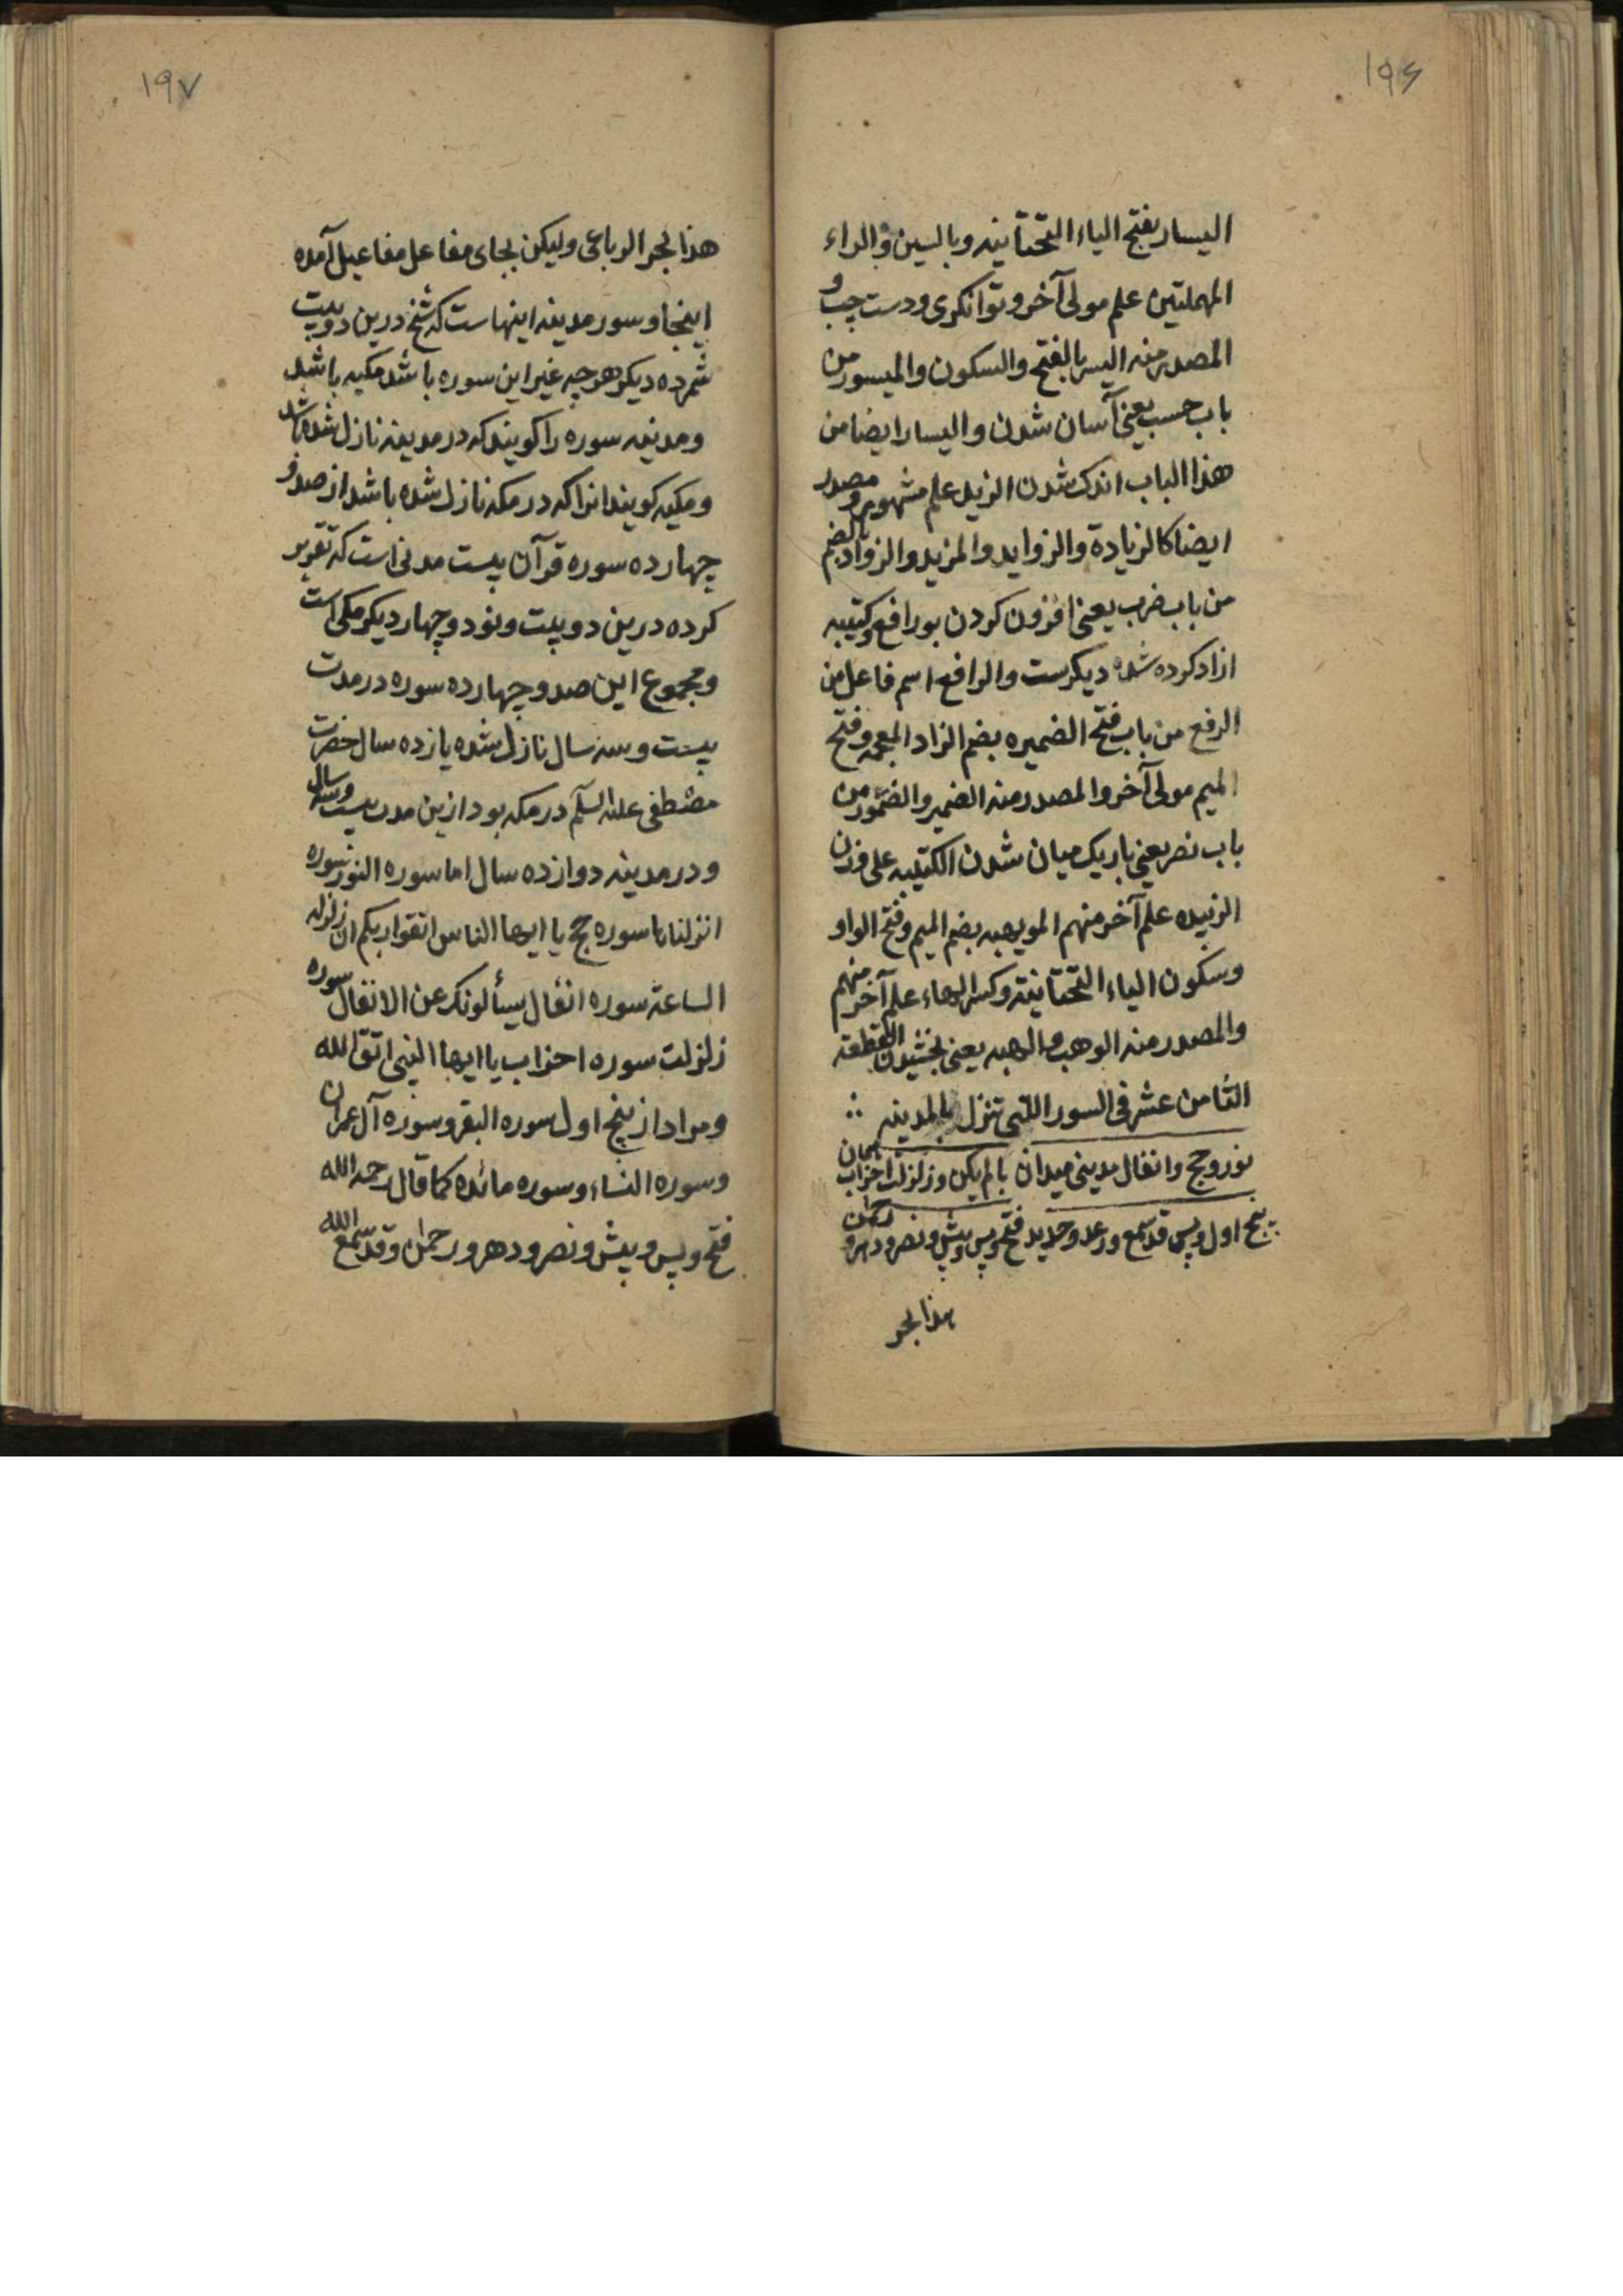 ١٩٦
الیسار بفتح الیاء التحتانیه وبالسین والراء
المهملتین علم مولی آخر وتوانکری ودست چپ و
المصدر منه الیسر بالفتح والسکون والمیسور من
باب حسب یعنی آسان شدن والیسار ایضا من
هذا الباب اندک شدن الزید علم مشهور ومصدر
ایضا کالزیادة والزواید والمزید والزواد بالضم
من باب ضرب یعنی افزون کردن بورافع وکتیبه
ازاد کرده شده دیکرست والرافع اسم فاعل من
الرفع من باب فتح الضمیره بضم الزاد المعجمه وفتح
المیم مولی آخر والمصدر منه الضمیر والضمور من
باب نصر یعنی باریک میان شدن الکتیبه علی وزن
الزبیده علم آخر منهم المویهبه بضم المیم وفتح الواو
وسکون الیاء التحتانیة وکسر الهاء علم آخر منهم
والمصدر منه الوهب والهبه یعنی بخشیدن القطعة
الثامن عشر فی السور اللتی تنزل بالمدینه
نور وحج وانفال مدینی میدان بالم یکن وزلزلت احزاب همان
پنج اول وپس قد سمع ورعد وحدید فتح وپس وپیش ونصر ودهر و رحمن
هذا لبحر
١٩٧
هذا لبحر الرباعی ولیکن بجای مفاعل مفاعیل آمده
اینجا و سور مدینه اینهاست که شیخ درین دو بیت
شمرده دیکر هرچه غیر این سوره باشد مکیه باشد
ومدنیه سوره را کویند که در مدینه نازل شده باشد
ومکیه کویند انرا که در مکه نازل شده باشد از صد و
چهارده سوره قرآن بیست مدنی است که تقریر
کرده درین دو بیت ونود وچهار دیکر مکی است
ومجموع این صد وچهارده سوره در مدت
بیست وسه سال نازل شده یازده سال حضرت
مصطفی علیه السلام در مکه بود ازین مدت بیست وسه سال
ودر مدینه دوازده سال اما سوره النور سوره
انزلناها سوره حج یا ایها الناس اتقوا ربکم ان زلزله
الساعة سوره انفال یسألونک عن الانفال سوره
زلزلت سوره احزاب یا ایها النبی اتق الله
ومراد از پنج اول سوره البقر وسوره آل عمران
وسوره النساء وسوره مائده کما قال رحمه الله
فتح وپس وپیش ونصر ودهر ورحمن وقد سمع الله